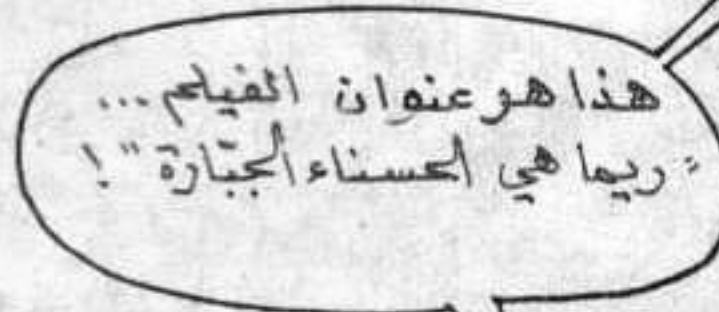 هذا هو عنوان الفيلم...
"ريما هي الحسناء الجبّارة"!